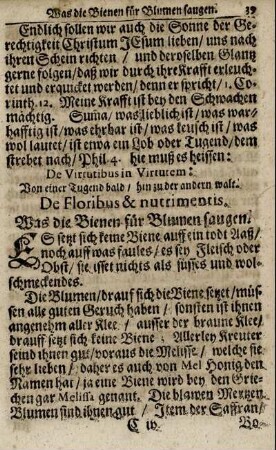 Was die Bienen für Blumen saugen. 39
Endlich sollen wir auch die Sonne der Ge-
rechtigkeit Christum JEsum lieben/ uns nach
ihren Schein richten/ und deroselben Glantz
gerne folgen/ daß wir durch ihre Krafft erleuch-
tet und erquicket werden/ denn er spricht/ 1. Co-
rinth. 12. Meine Krafft ist bey den Schwachen
mächtig. Suma/ was lieblich ist/ was war-
hafftig ist/ was ehrbar ist/ was keusch ist/ was
wol lautet/ ist etwa ein Lob oder Tugend/ dem
strebet nach/ Phil 4. hie muß es heissen:
De Virtutibus in Virtutem:
Von einer Tugend bald/ hin zu der andern walt.
De Floribus & nutrimentis.
Was die Bienen für Blumen saugen.
ES setzt sich keine Biene auff ein todt Aaß/
noch auff was faules/ es sey Fleisch oder
Obst/ sie isset nichts als süsses und wol-
schmeckendes.
Die Blumen/ drauf sich die Biene setzet/ müs-
sen alle guten Geruch haben/ sonsten ist ihnen
angenehm aller Klee/ ausser der braune Klee/
drauff setzt sich keine Biene. Allerley Kreuter
seind ihnen gut/ voraus die Melisse/ welche sie
sehr lieben/ daher es auch von Mel Honig den
Namen hat/ ja eine Biene wird bey den Grie-
chen gar Melissa genant. Die blawen Mertzen
Blumen sind ihnen gut/ Item der Saffran/
C iv Bo-